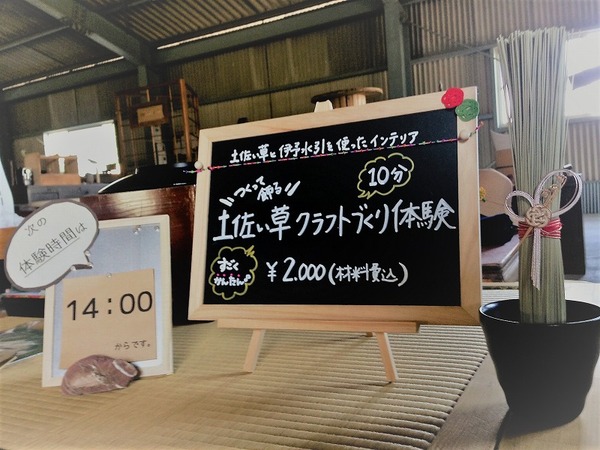 土佐い草と伊予水引を使ったインテリア
つくって飾る
10分
土佐い草クラフトづくり体験
すごく
かんたん♪
¥2.000(材料費込)
次の
体験時間は
14:00
からです。